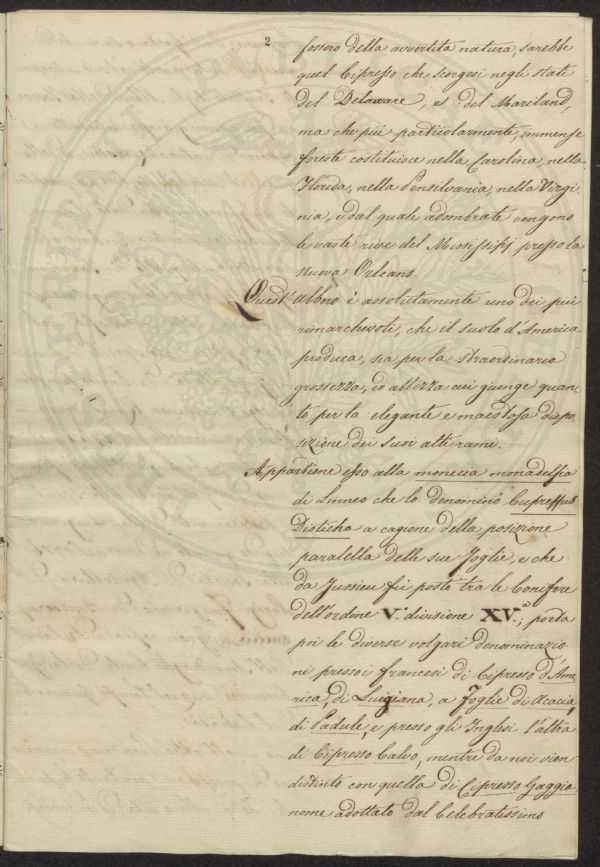 2
fossero della avvertita natura, sarebbe
quel Cipresso che scorgesi negli stati
del Delaware, e del Mariland,
ma che piú particolarmente, immense
foreste costituisce nella Carolina, nella
Florida, nella Pensilvania, nella Virgi
nia, e dal quale adombrate vengono
le vaste rive del Mississipi presso la
nuova Orleans.
Quest'albero è assolutamente uno dei piú
rimarchevoli, che il suolo d'America
produca, sia per la straordinaria
grossezza, ed altezza cui giunge quan
to per la elegante e maestosa dispo
sizione dei suoi alti rami.
Appartiene esso alla monecia monadelfia
di Linneo che lo denominò Cupressus
Disticha a cagione della posizione
paralella delle sue foglie, e che
da Jussieu fú posto tra le Conifere
dell'ordine V.° divisione XV.ª; porta
poi le diverse volgari denominazio
ni presso i francesi di Cipresso d'Ame
rica, di Luigiana, a foglie di Acacia,
di Padule, e presso gli Inglesi l'altra
di Cipresso Calvo, mentre da noi vien
distinto con quella di Cipresso Gaggia
nome adottato dal Celebratissimo